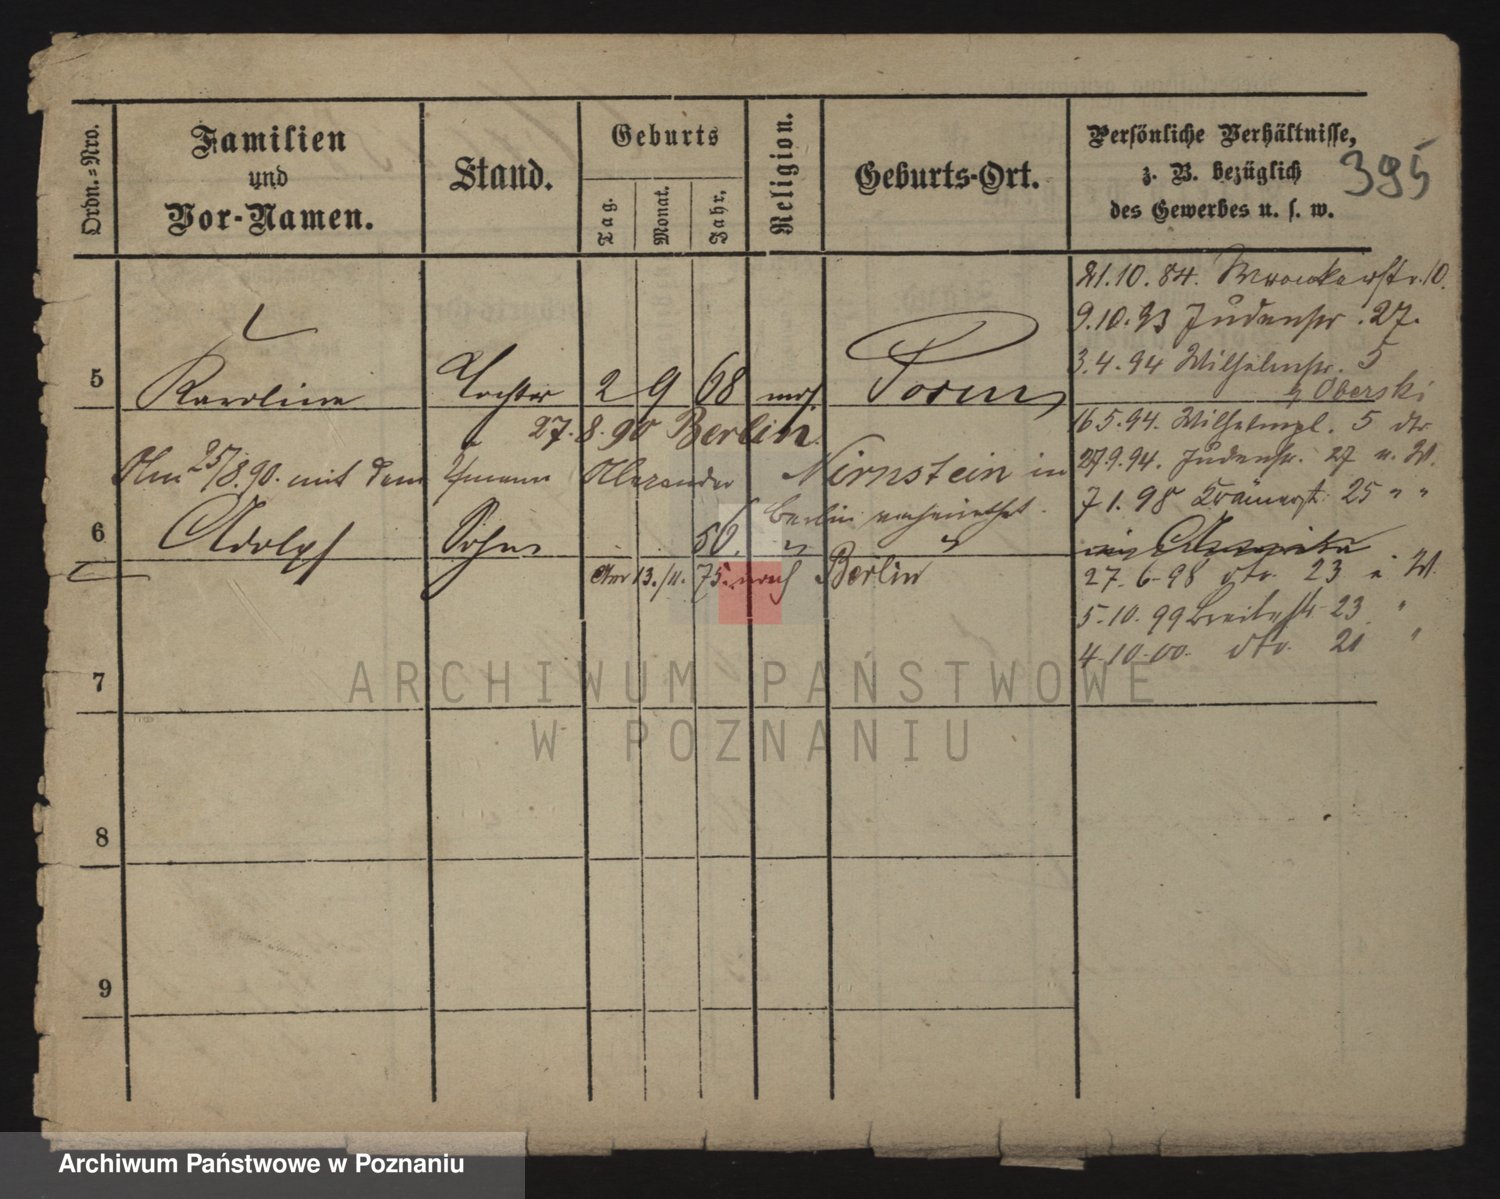 Ordn.=Nro.
Familien
und
Vor-Namen.
Stand.
Geburts
Tag.
Monat.
Jahr.
Religion.
Geburts-Ort.
Persönliche Verhältnisse,
z. B. bezüglich
des Gewerbes u. s. w.
395
21.10.84. Wronkerstr. 10.
9.10.93 Judenstr. 27.
3.4.94 Wilhelmstr. 5
b Oberski
5 Karoline Tochter 2 9 68 mos. Posen
27.8.90 Berlin.
16.5.94. Wilhelmpl. 5 dto
Am 25/8.90. mit dem Alexander Nirnstein in
27.9.94. Judenstr. 27 u. W.
Berlin verheirathet.
7.1.98 Krämerstr. 25 " "
6 Adolph Sohn 56. " "
Am 13./11. 75. nach Berlin
27.6.98 dto. 23 " W.
5.10.99 Breitestr. 23 "
4.10.00. dto. 21 "
7
8
9
ARCHIWUM PAŃSTWOWE
W POZNANIU
Archiwum Państwowe w Poznaniu